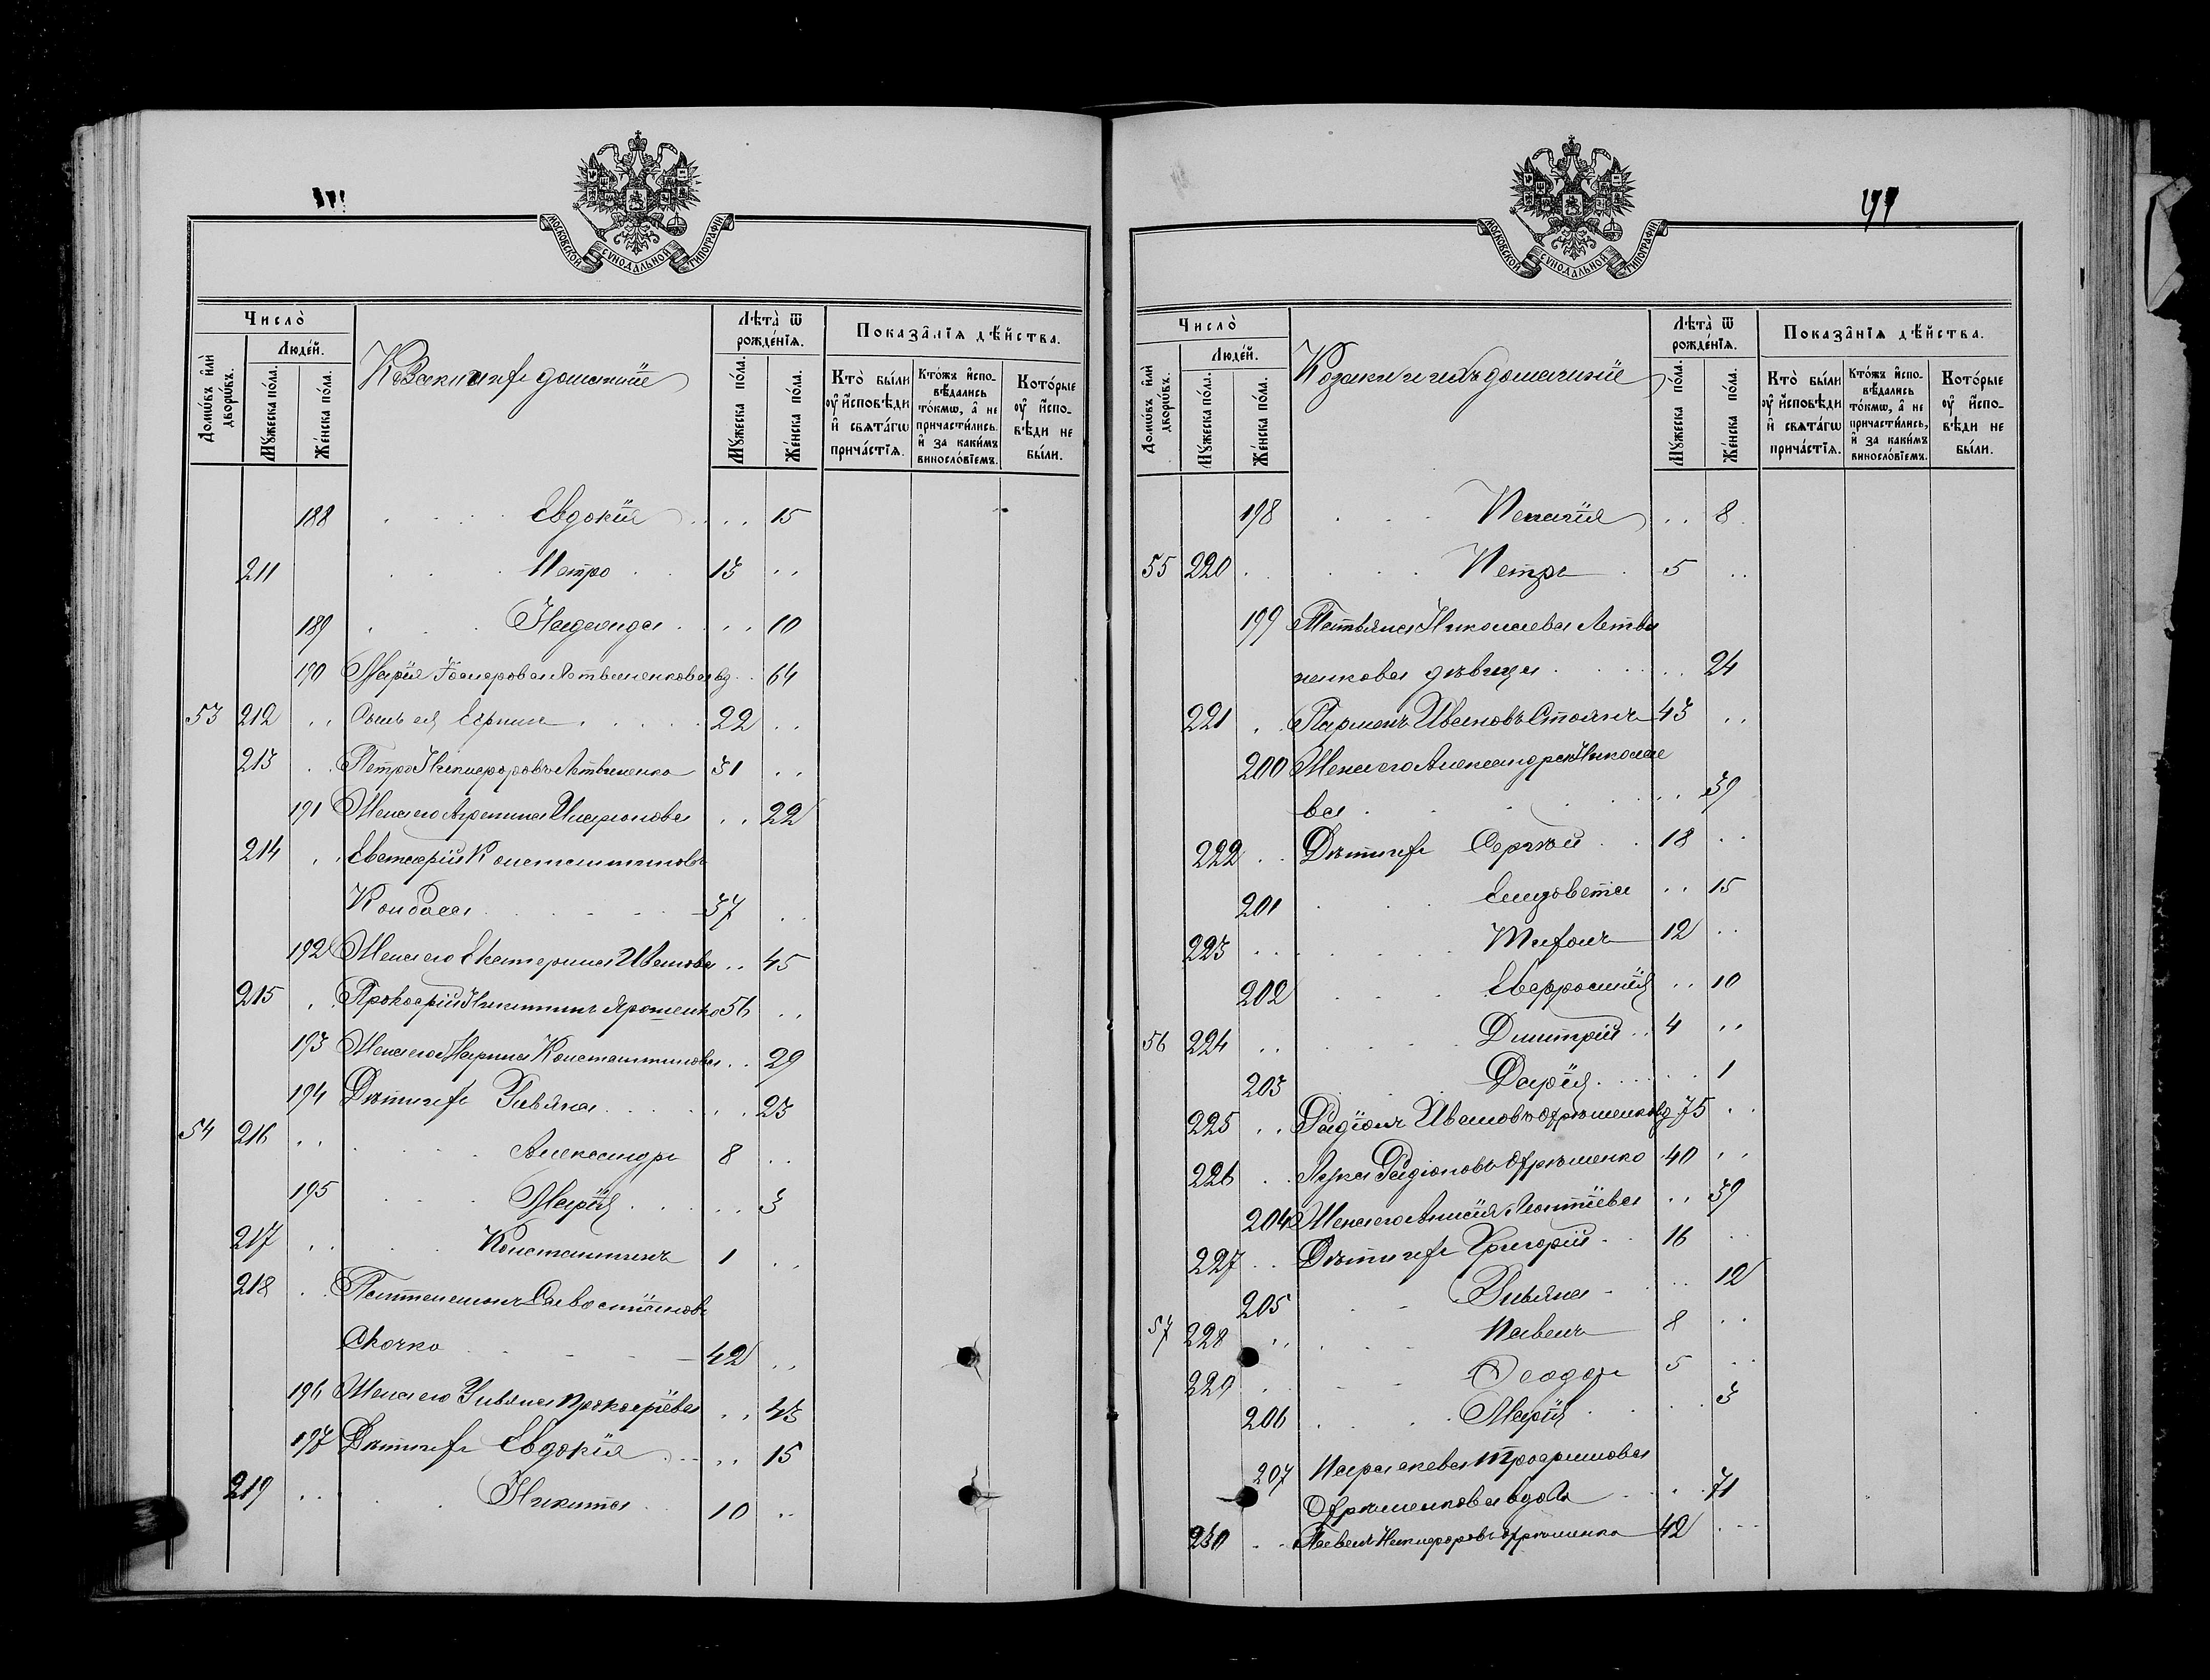 МОСКОВСКОЙ СУНОДАЛЬНОЙ ТИПОГРАФІИ
Число̀
Домѡ́въ и҆лѝ дворѡ́въ.
Люде́й.
Мꙋ́жеска по́ла.
Же́нска по́ла.
Козаки и ихъ домашніе
Лѣ́та ѿ рожде́нїѧ.
Мꙋ́жеска по́ла.
Же́нска по́ла.
Показа̑нїѧ дѣ́йства.
Кто̀ бы́ли оу҆ и҆спо́вѣди и҆ свѧта́гѡ прича́стїѧ.
Кто́жъ и҆спо-вѣ́дались то́кмѡ, а҆ не причасти́лись. и҆ за каки́мъ винослові́емъ.
Кото́рые оу҆ и҆спо-вѣди не бы́ли.
188 Евдокія 15
211 Петръ 13
189 Надежда 10
190 Марія Литвиненкова вд. 64
53 212 Сынъ ея 22
213 Петръ Никифоровъ Литвиненко 31
191 Жена его Агрипина Иларіонова 22
214 Евстафій Константиновъ
Колбаса 37
192 Жена его Екатерина Иванова 45
215 Прокофій Никитинъ Ярошенко 56
193 Жена его Марина Константинова 29
194 Дѣти ихъ Ульяна 23
54 216 Александръ 8
195 Марія 3
217 Константинъ 1
218 Пантелеимонъ Савостіановъ
Скочко 42
196 Жена его Ульяна Прокофіева 43
197 Дѣти ихъ Евдокія 15
219 Никита 10
МОСКОВСКОЙ СУНОДАЛЬНОЙ ТИПОГРАФІИ
Число̀
Домѡ́въ и҆лѝ дворѡ́въ.
Люде́й.
Мꙋ́жеска по́ла.
Же́нска по́ла.
Козаки и ихъ домашніе
Лѣ́та ѿ рожде́нїѧ.
Мꙋ́жеска пола.
Же́нска по́ла.
Показа̑нїѧ дѣ́йства.
Кто̀ бы́ли оу҆ и҆спо́вѣди и҆ свѧта́гѡ прича́стїѧ.
Кто́жъ и҆спо-вѣ́дались то́кмѡ, а҆ не причасти́лись, и҆ за каки́мъ винослові́емъ.
Кото́рые оу҆ и҆спо-вѣди не бы́ли.
198 Пелагія 8
55 220 Петръ 5
199 Татьяна Николаева Литви
ненкова дѣвица 24
221 Парменъ Ивановъ Стоянъ 43
200 Жена его Александра Николае
ва 39
222 Дѣти ихъ Сергѣй 18
201 Елизовета 15
223 12
202 Евфросинія 10
56 224 Димитрій 4
203 Дарія 1
225 Радіонъ Ивановъ Охрѣменко вд 75
226 Лука Радіоновъ Охрѣменко 40
204 Жена его Анисія Леонтіева 39
227 Дѣти ихъ Григорій 16
205 Ульяна 12
57 228 Павелъ 8
229 Ѳеодоръ 5
206 Марія 3
207 Параскева Трофимова
Охрѣменкова вдова 71
230 Павелъ Никифоровъ Охрѣменко 42